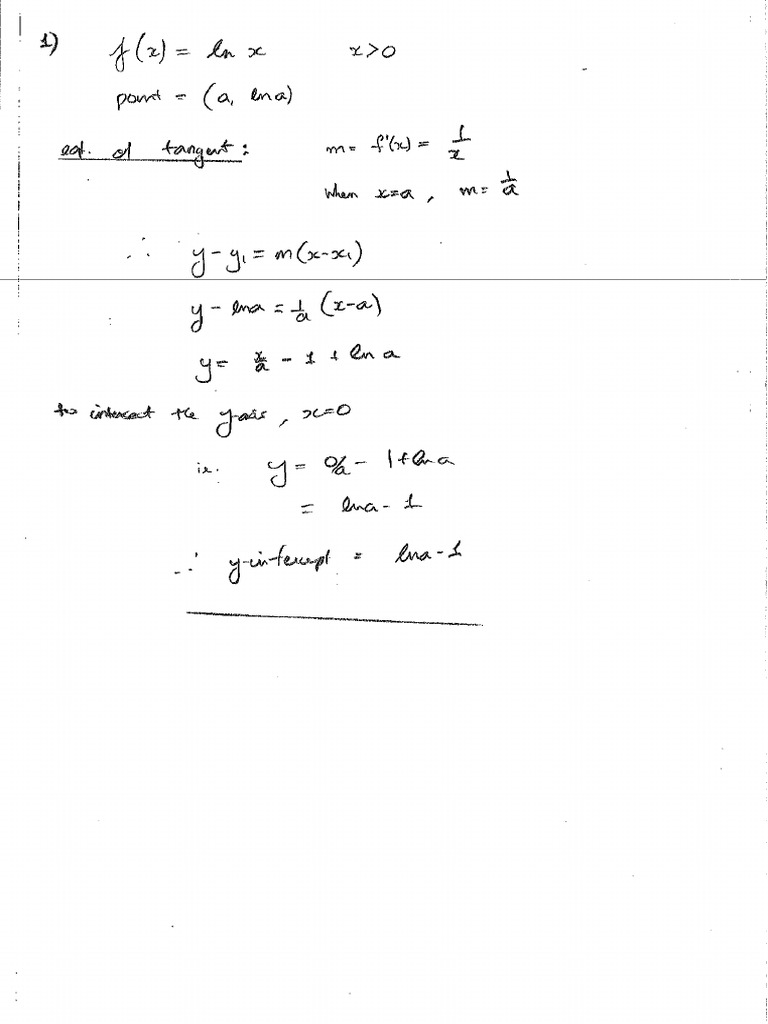 1) f(x) = ln x x>0
point = (a, ln a)
eqt. of tangent: m = f'(x) = 1/x
when x=a, m = 1/a
∴ y - y₁ = m(x-x₁)
y - ln a = 1/a (x-a)
y = x/a - 1 + ln a
to intersect the y axis, x=0
ie. y = 0/a - 1 + ln a
= ln a - 1
∴ y-intercept = ln a - 1